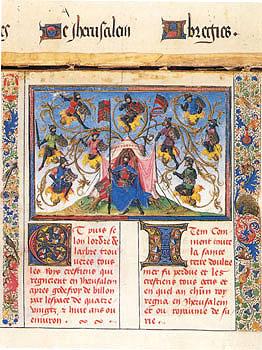 es De Jherusalem Abregies.
Et puis se
lon lordre de
larbre trouves
tous les roys crestiens qui
regnerent en Jherusalem
apres godefroy de billon
par lespace de quatre
vingtz & huit ans ou
environ.
Item Com
ment toute
la sainte
terre doultre
mer fu perdue et les
crestiens tous et
en quel an chun roy
regna en Jherusalem
et ou royaulme de su
rie.